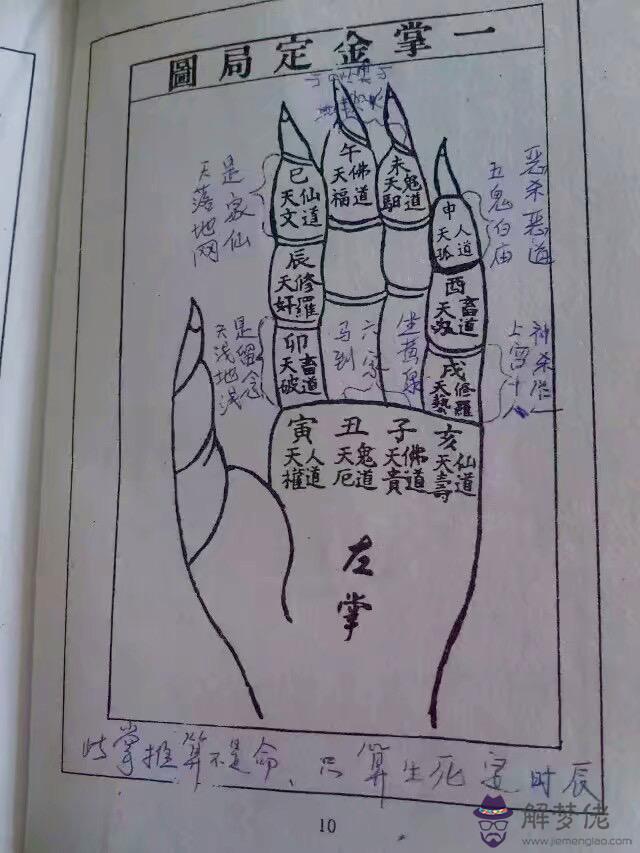 一掌金定局圖
巳
天文 仙道
午
天福 佛道
未
天馹 鬼道
申
天孤 人道
辰
天奸 修羅
酉
天刄 畜道
卯
天破 畜道
戌
天藝 修羅
寅
天權 人道
丑
天厄 鬼道
子
天貴 佛道
亥
天壽 仙道
左掌
是家仙
天落地网
恶杀恶道
五鬼伯庙
是留念
天浅地浅
六家
马到
坐黄泉
此掌推算不是命、只算生死定时辰
10
解梦佬
www.jiemenglao.com